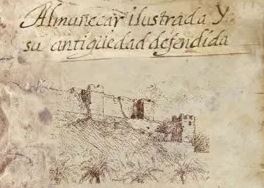 Almuñecar ilustrada y
su antigüedad defendida